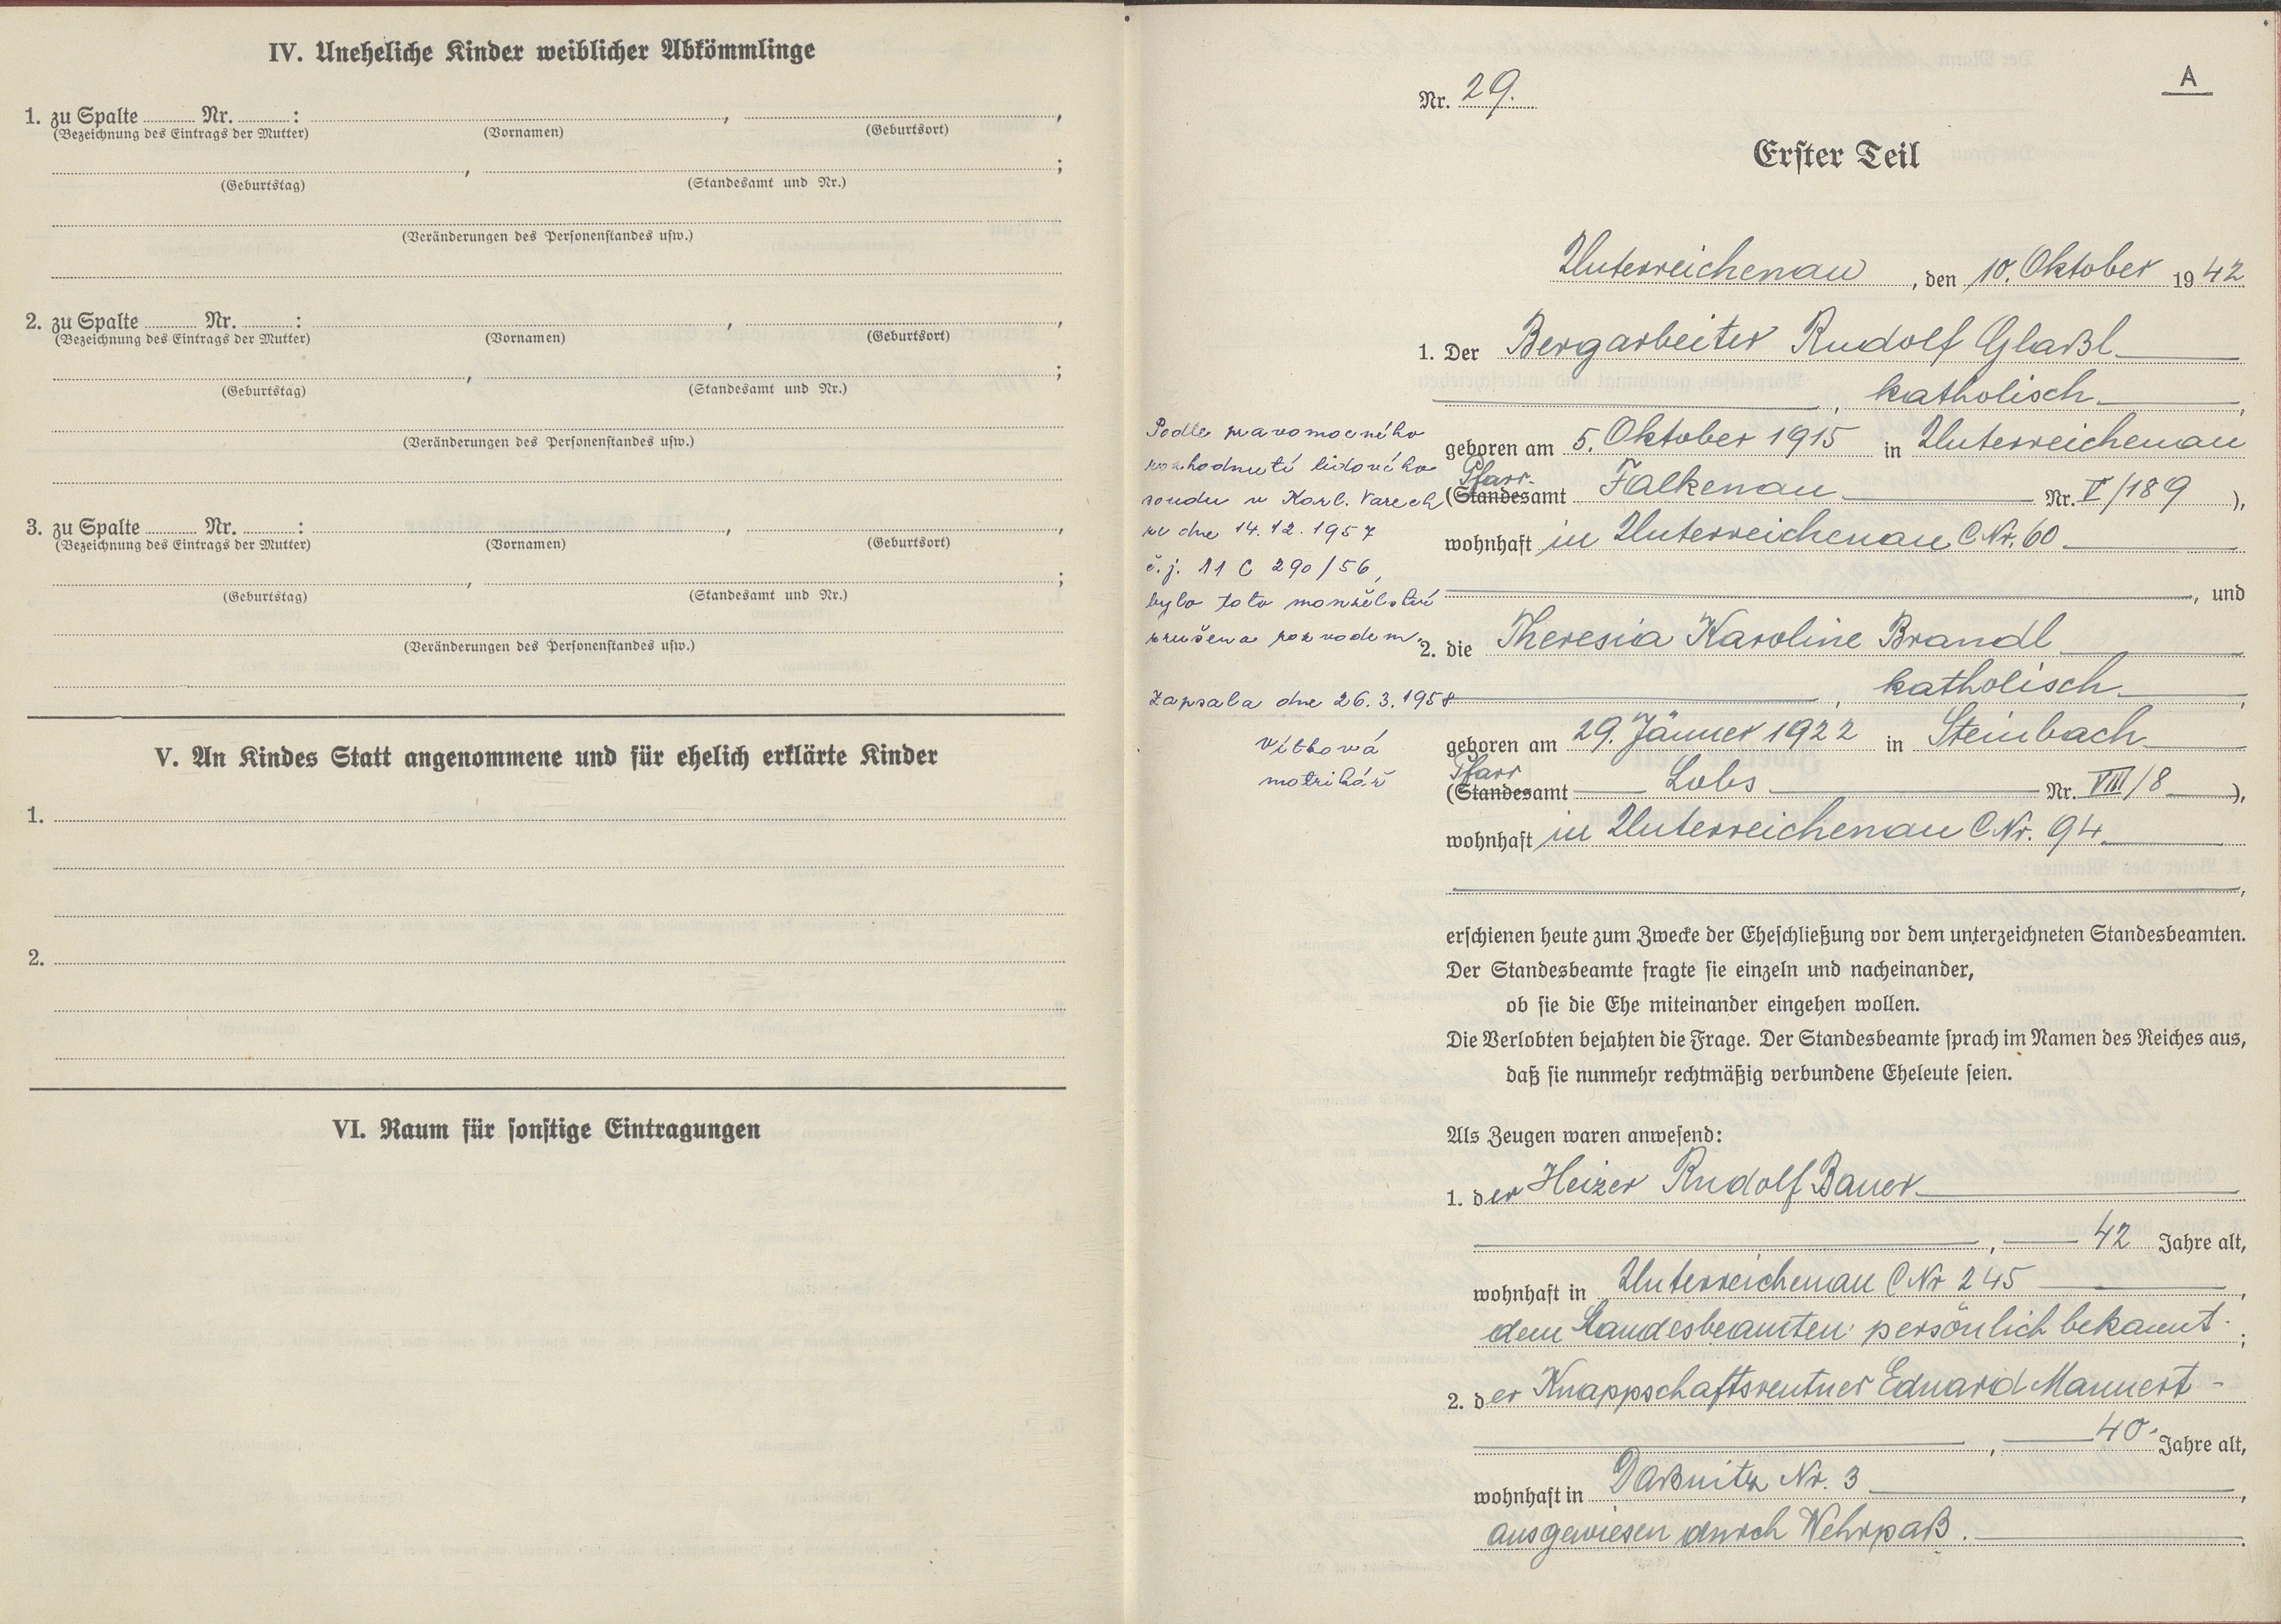 IV. Uneheliche Kinder weiblicher Abkömmlinge
1. zu Spalte ........ Nr. ........ : ........ , ........ ,
(Bezeichnung des Eintrags der Mutter) (Vornamen) (Geburtsort)
........ , ........ ;
(Geburtstag) (Standesamt und Nr.)
(Veränderungen des Personenstandes usw.)
2. zu Spalte ........ Nr. ........ : ........ , ........ ,
(Bezeichnung des Eintrags der Mutter) (Vornamen) (Geburtsort)
........ , ........ ;
(Geburtstag) (Standesamt und Nr.)
(Veränderungen des Personenstandes usw.)
3. zu Spalte ........ Nr. ........ : ........ , ........ ,
(Bezeichnung des Eintrags der Mutter) (Vornamen) (Geburtsort)
........ , ........ ;
(Geburtstag) (Standesamt und Nr.)
(Veränderungen des Personenstandes usw.)
V. An Kindes Statt angenommene und für ehelich erklärte Kinder
1.
2.
VI. Raum für sonstige Eintragungen
A
Nr. 29.
Erster Teil
Unterreichenau, den 10. Oktober 1942
1. Der Bergarbeiter Rudolf Glaßl
, katholisch,
geboren am 5. Oktober 1915 in Unterreichenau
Pfarr-
(Standesamt Falkenau Nr. V/189),
wohnhaft in Unterreichenau C.Nr. 60
, und
2. die Theresia Karoline Brandl
, katholisch,
geboren am 29. Jänner 1922 in Steinbach
Pfarr
(Standesamt Lobs Nr. VIII/8),
wohnhaft in Unterreichenau C.Nr. 94
,
Podle pravomocného
rozhodnutí lidového
soudu v Karl. Varech
ze dne 14.12.1957
č.j. 11 C 290/56,
bylo toto manželství
zrušeno rozvodem.
Zapsala dne 26.3.1958
Vítková
matrikář
erschienen heute zum Zwecke der Eheschließung vor dem unterzeichneten Standesbeamten.
Der Standesbeamte fragte sie einzeln und nacheinander,
ob sie die Ehe miteinander eingehen wollen.
Die Verlobten bejahten die Frage. Der Standesbeamte sprach im Namen des Reiches aus,
daß sie nunmehr rechtmäßig verbundene Eheleute seien.
Als Zeugen waren anwesend:
1. der Heizer Rudolf Bauer
, 42 Jahre alt,
wohnhaft in Unterreichenau C.Nr 245,
dem Standesbeamten persönlich bekannt.;
2. der Knappschaftsrentner Eduard Mannert
, 40 Jahre alt,
wohnhaft in Daßnitz Nr. 3,
ausgewiesen durch Wehrpaß.